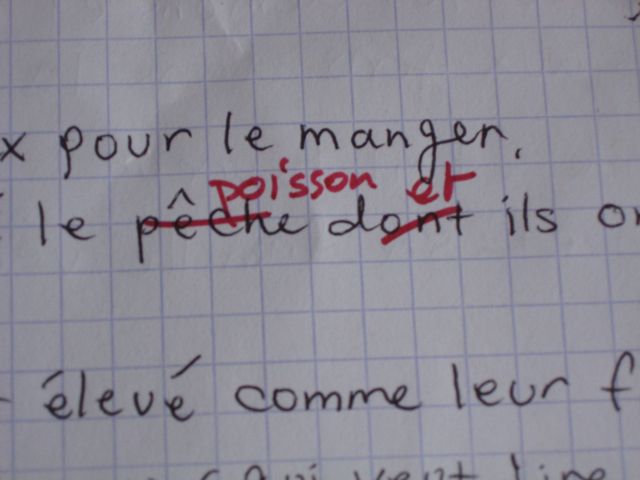 x pour le manger.
poisson et
le pêche dont ils on
élevé comme leur f